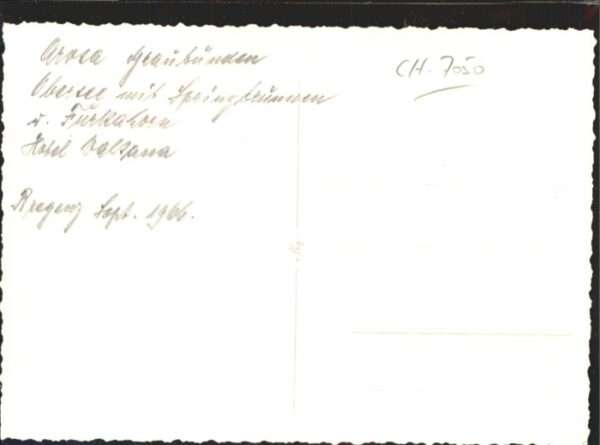 Arosa Graubünden
CH-7050
Obersee mit Springbrunnen
u. Furkahorn
Hotel Valsana
Bregenz Sept. 1966.